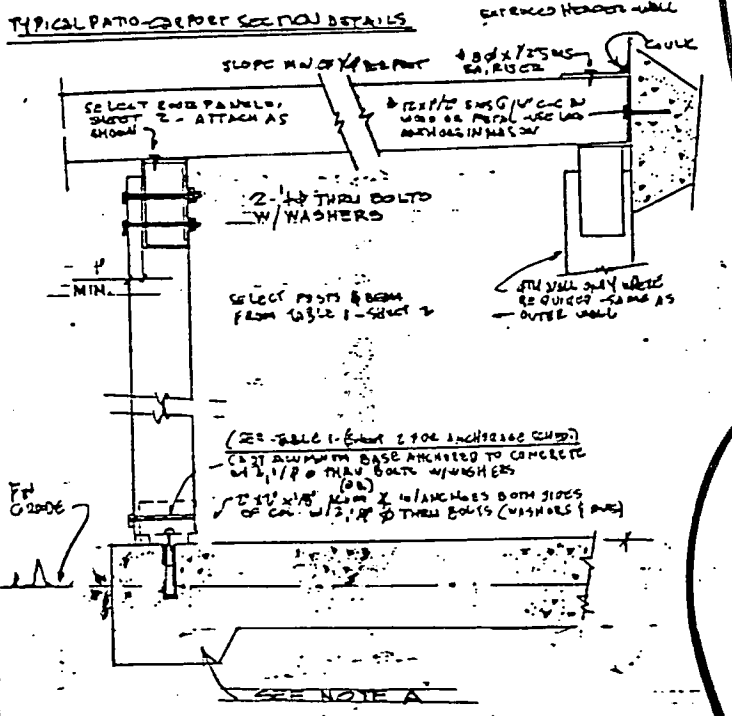 TYPICAL PATIO-CARPORT SECTION DETAILS
EXTRUDED HEADER-WALL
CAULK
SLOPE MIN OF 1/8 PER FOOT
EA. RISER
SELECT ROOF PANELS,
SHEET 2 - ATTACH AS
SHOWN
WOOD OR METAL - USE
ANCHORS IN MASON
2- THRU BOLTS
W/WASHERS
1"
MIN.
SELECT POSTS & BEAM
FROM TABLE 1 - SHEET 2
4TH WALL ONLY WHERE
REQUIRED - SAME AS
OUTER WALL
(SEE - TABLE 1 - SHEET 2 FOR ANCHORAGE SCHED.)
CAST ALUMINUM BASE ANCHORED TO CONCRETE
THRU BOLTS W/WASHERS
(OR)
W/ANCHORS BOTH SIDES
OF COL. THRU BOLTS (WASHERS &
FIN
GRADE
SEE NOTE A